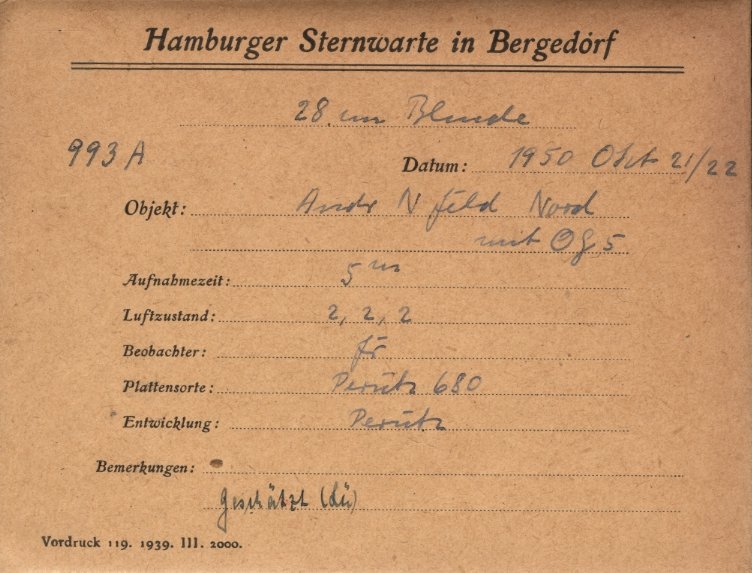 Hamburger Sternwarte in Bergedorf
28 cm Blende
993 A
Datum: 1950 Okt 21/22
Objekt: Andr N feld Nord
mit OG 5
Aufnahmezeit: 5 m
Luftzustand: 2, 2, 2
Beobachter: fr
Plattensorte: Perutz 680
Entwicklung: Perutz
Bemerkungen:
geschätzt (dü)
Vordruck 119. 1939. III. 2000.